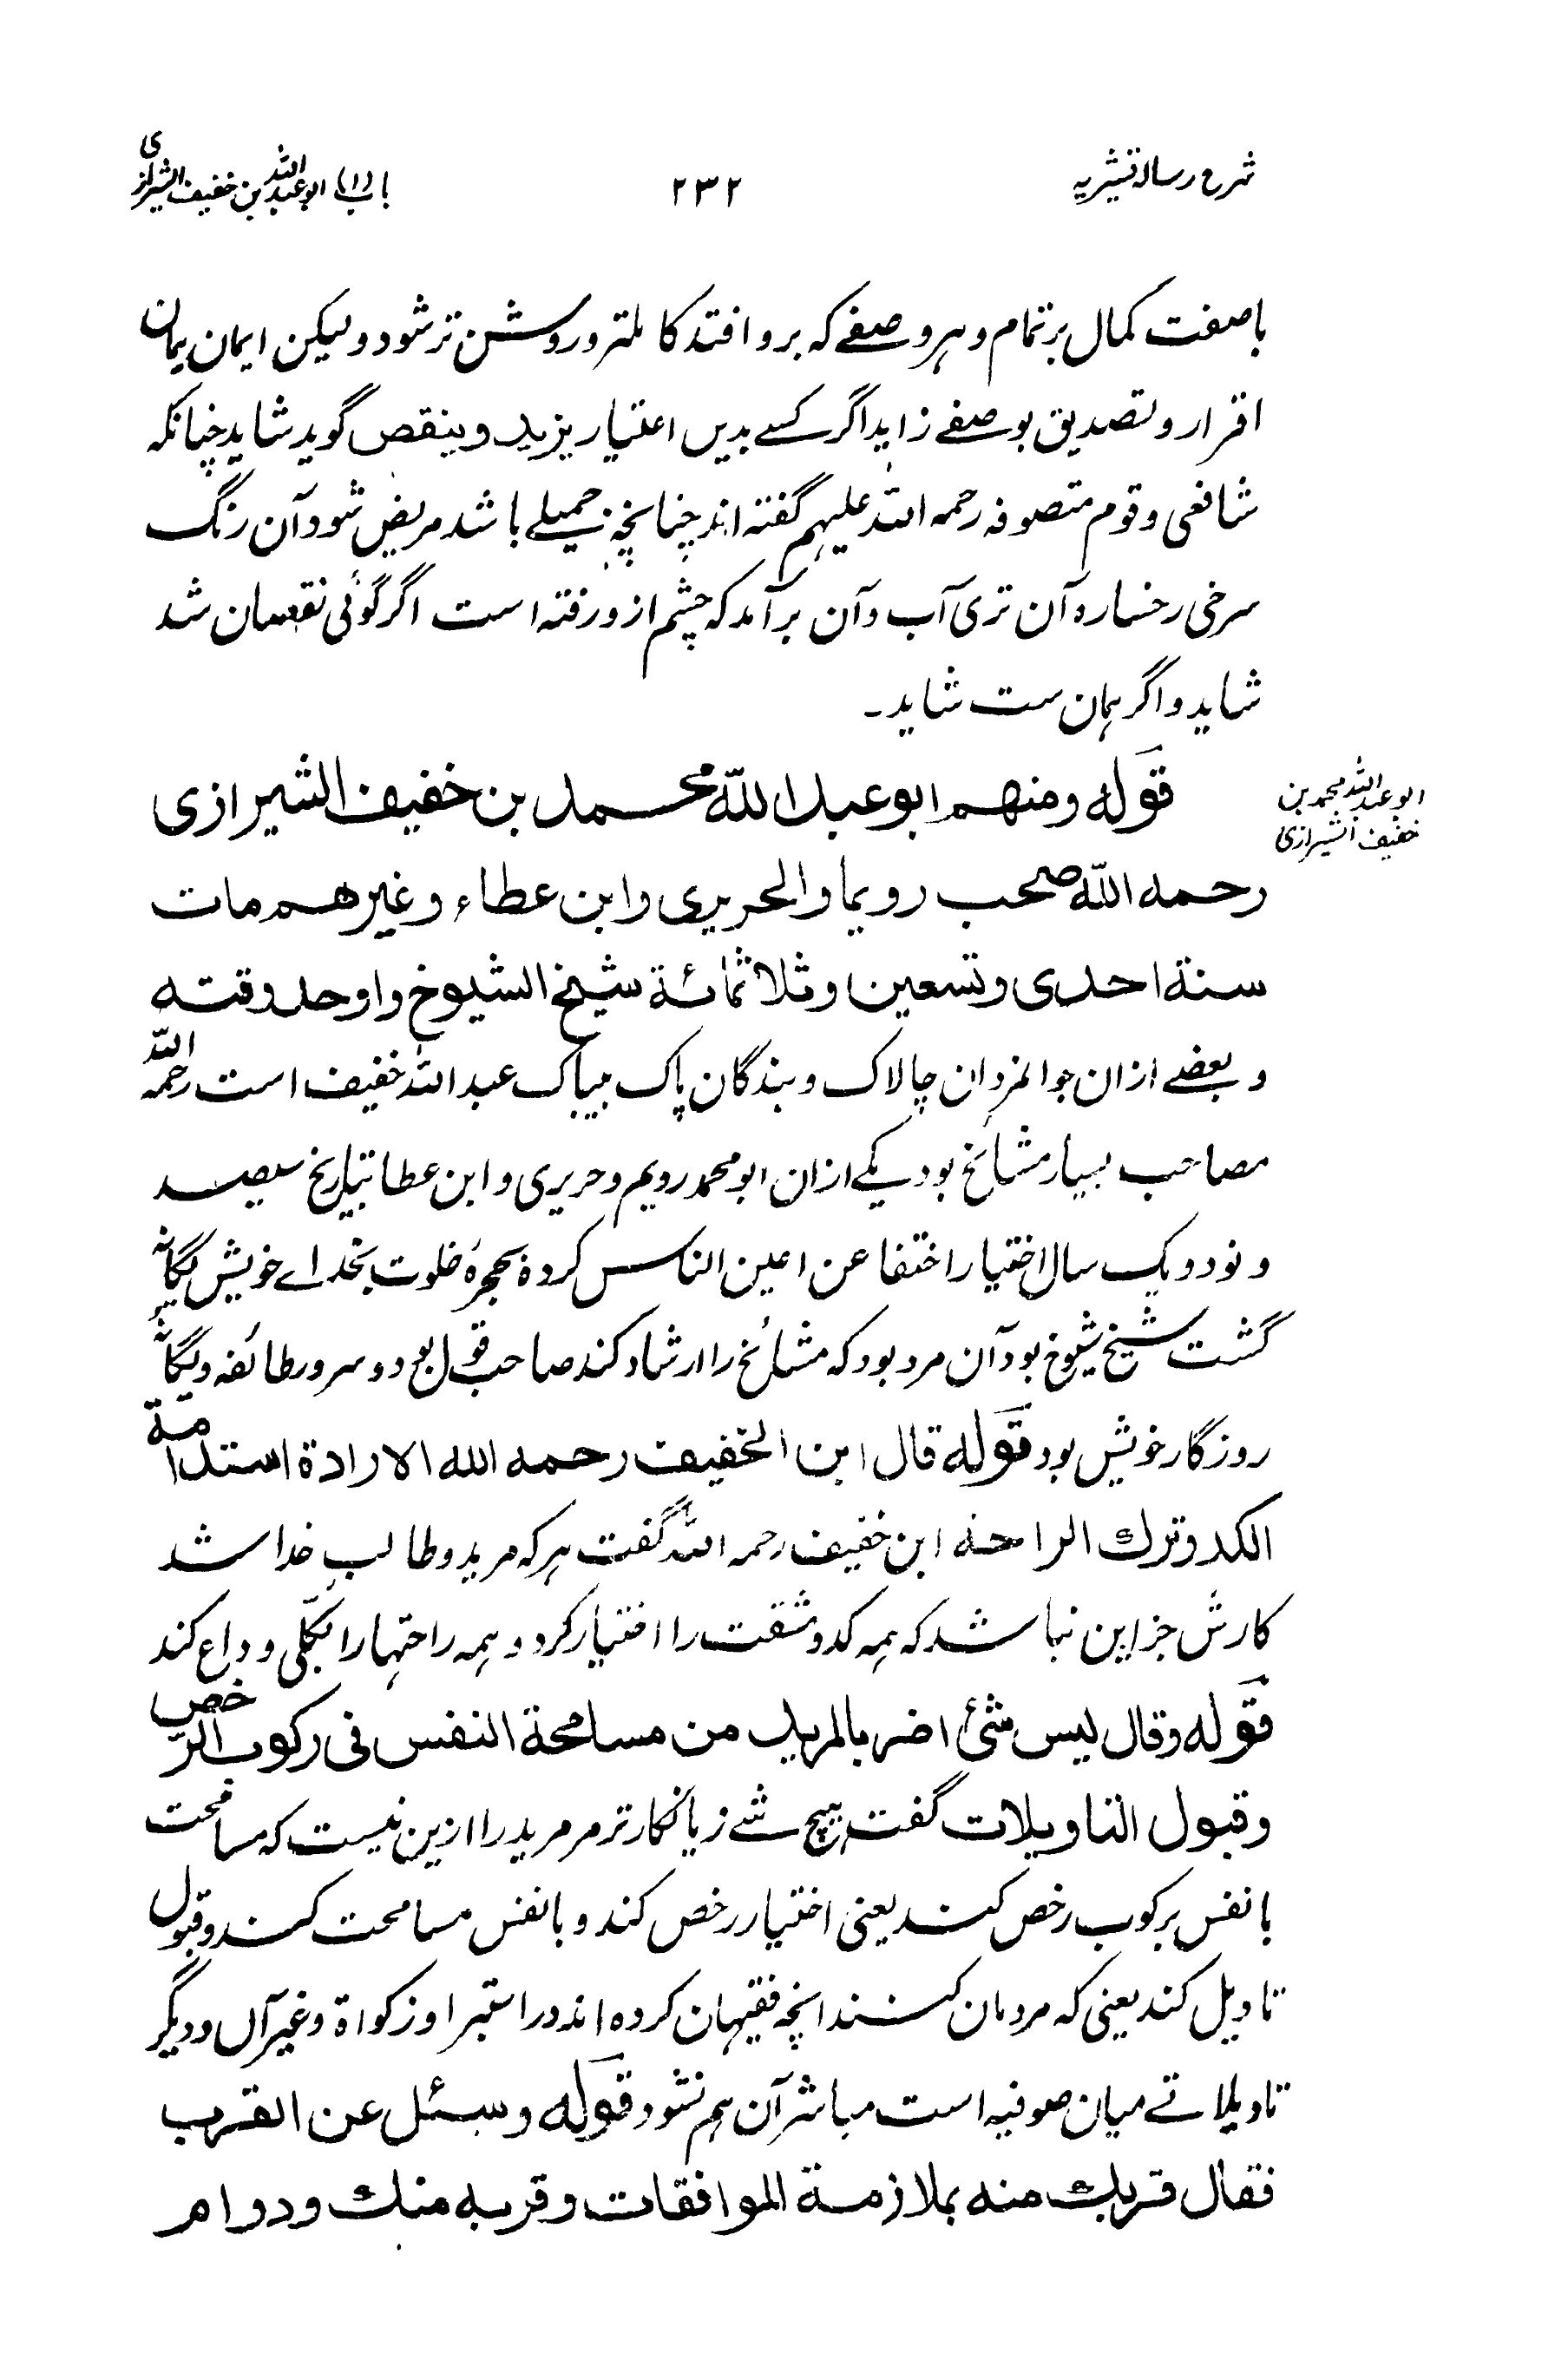 شرح رسالہ قشیریہ
۲۳۲
باب (۱) ابو عبداللہ بن خفیف الشیرازی
باصفت کمال برتمام و ہر وصفے کہ برو افتد کاملتر و روشن تر شود ولیکن ایمان ہمان
اقرار و تصدیق بوصفے زاید اگر کسے بدیں اعتبار یزید و ینقص گوید شاید چنانکہ
شافعی و قوم متصوفہ رحمہ اللہ علیہم گفتہ اند چنانچہ جمیلے باشد مریض شود آن رنگ
سرخی رخسارہ آن تری آب و آن برآمد کہ چشم ازو رفتہ است اگر گوئی نقصان شد
شاید و اگر ہمان ست شاید۔
ابو عبداللہ محمد بن
خفیف الشیرازی
قوله ومنهم ابو عبد الله محمد بن خفيف الشيرازى
رحمه الله صحب رويما والحريرى وابن عطاء وغيرهم مات
سنة احدى وتسعين وثلاثمائة شيخ الشيوخ واوحد وقته
و بعضے ازان جوانمردان چالاک و بندگان پاک بیباک عبداللہ خفیف است رحمہ اللہ
مصاحب بسیار مشائخ بود یکے ازان ابو محمد رویم و حریری و ابن عطا بتاریخ سیصد
و نود و یک سال اختیار اختفا عن اعین الناس کردہ بحجرۂ خلوت بخداے خویش یگانہ
گشت شیخ شیوخ بود آن مرد بود کہ مشائخ را ارشاد کند صاحب قول بود و سرور طائفہ و یگانہ
روزگار خویش بود قوله قال ابن الخفيف رحمه الله الارادة استدامة
الكد وترك الراحة ابن خفیف رحمہ اللہ گفت ہر کہ مرید و طالب خدا شد
کارش جز این نباشد کہ ہمہ کد و مشقت را اختیار کرد و ہمہ راحتہا را بکلّی وداع کند
قوله وقال ليس شئ اضر بالمريد من مسامحة النفس فى ركوب الرخص
وقبول التاويلات گفت ہیچ شے زیانکارتر مر مرید را ازین نیست کہ مسامحت
با نفس برکوب رخص کند یعنی اختیار رخص کند و با نفس مسامحت کند و قبول
تاویل کند یعنی کہ مردمان کنند انچہ فقیہان کردہ اند در استبرا و زکواۃ و غیر آں و دیگر
تاویلاتے میان صوفیہ است مباشر آن ہم نشود قوله وسئل عن القرب
فقال قربك منه بملازمة الموافقات وقربه منك ودوام